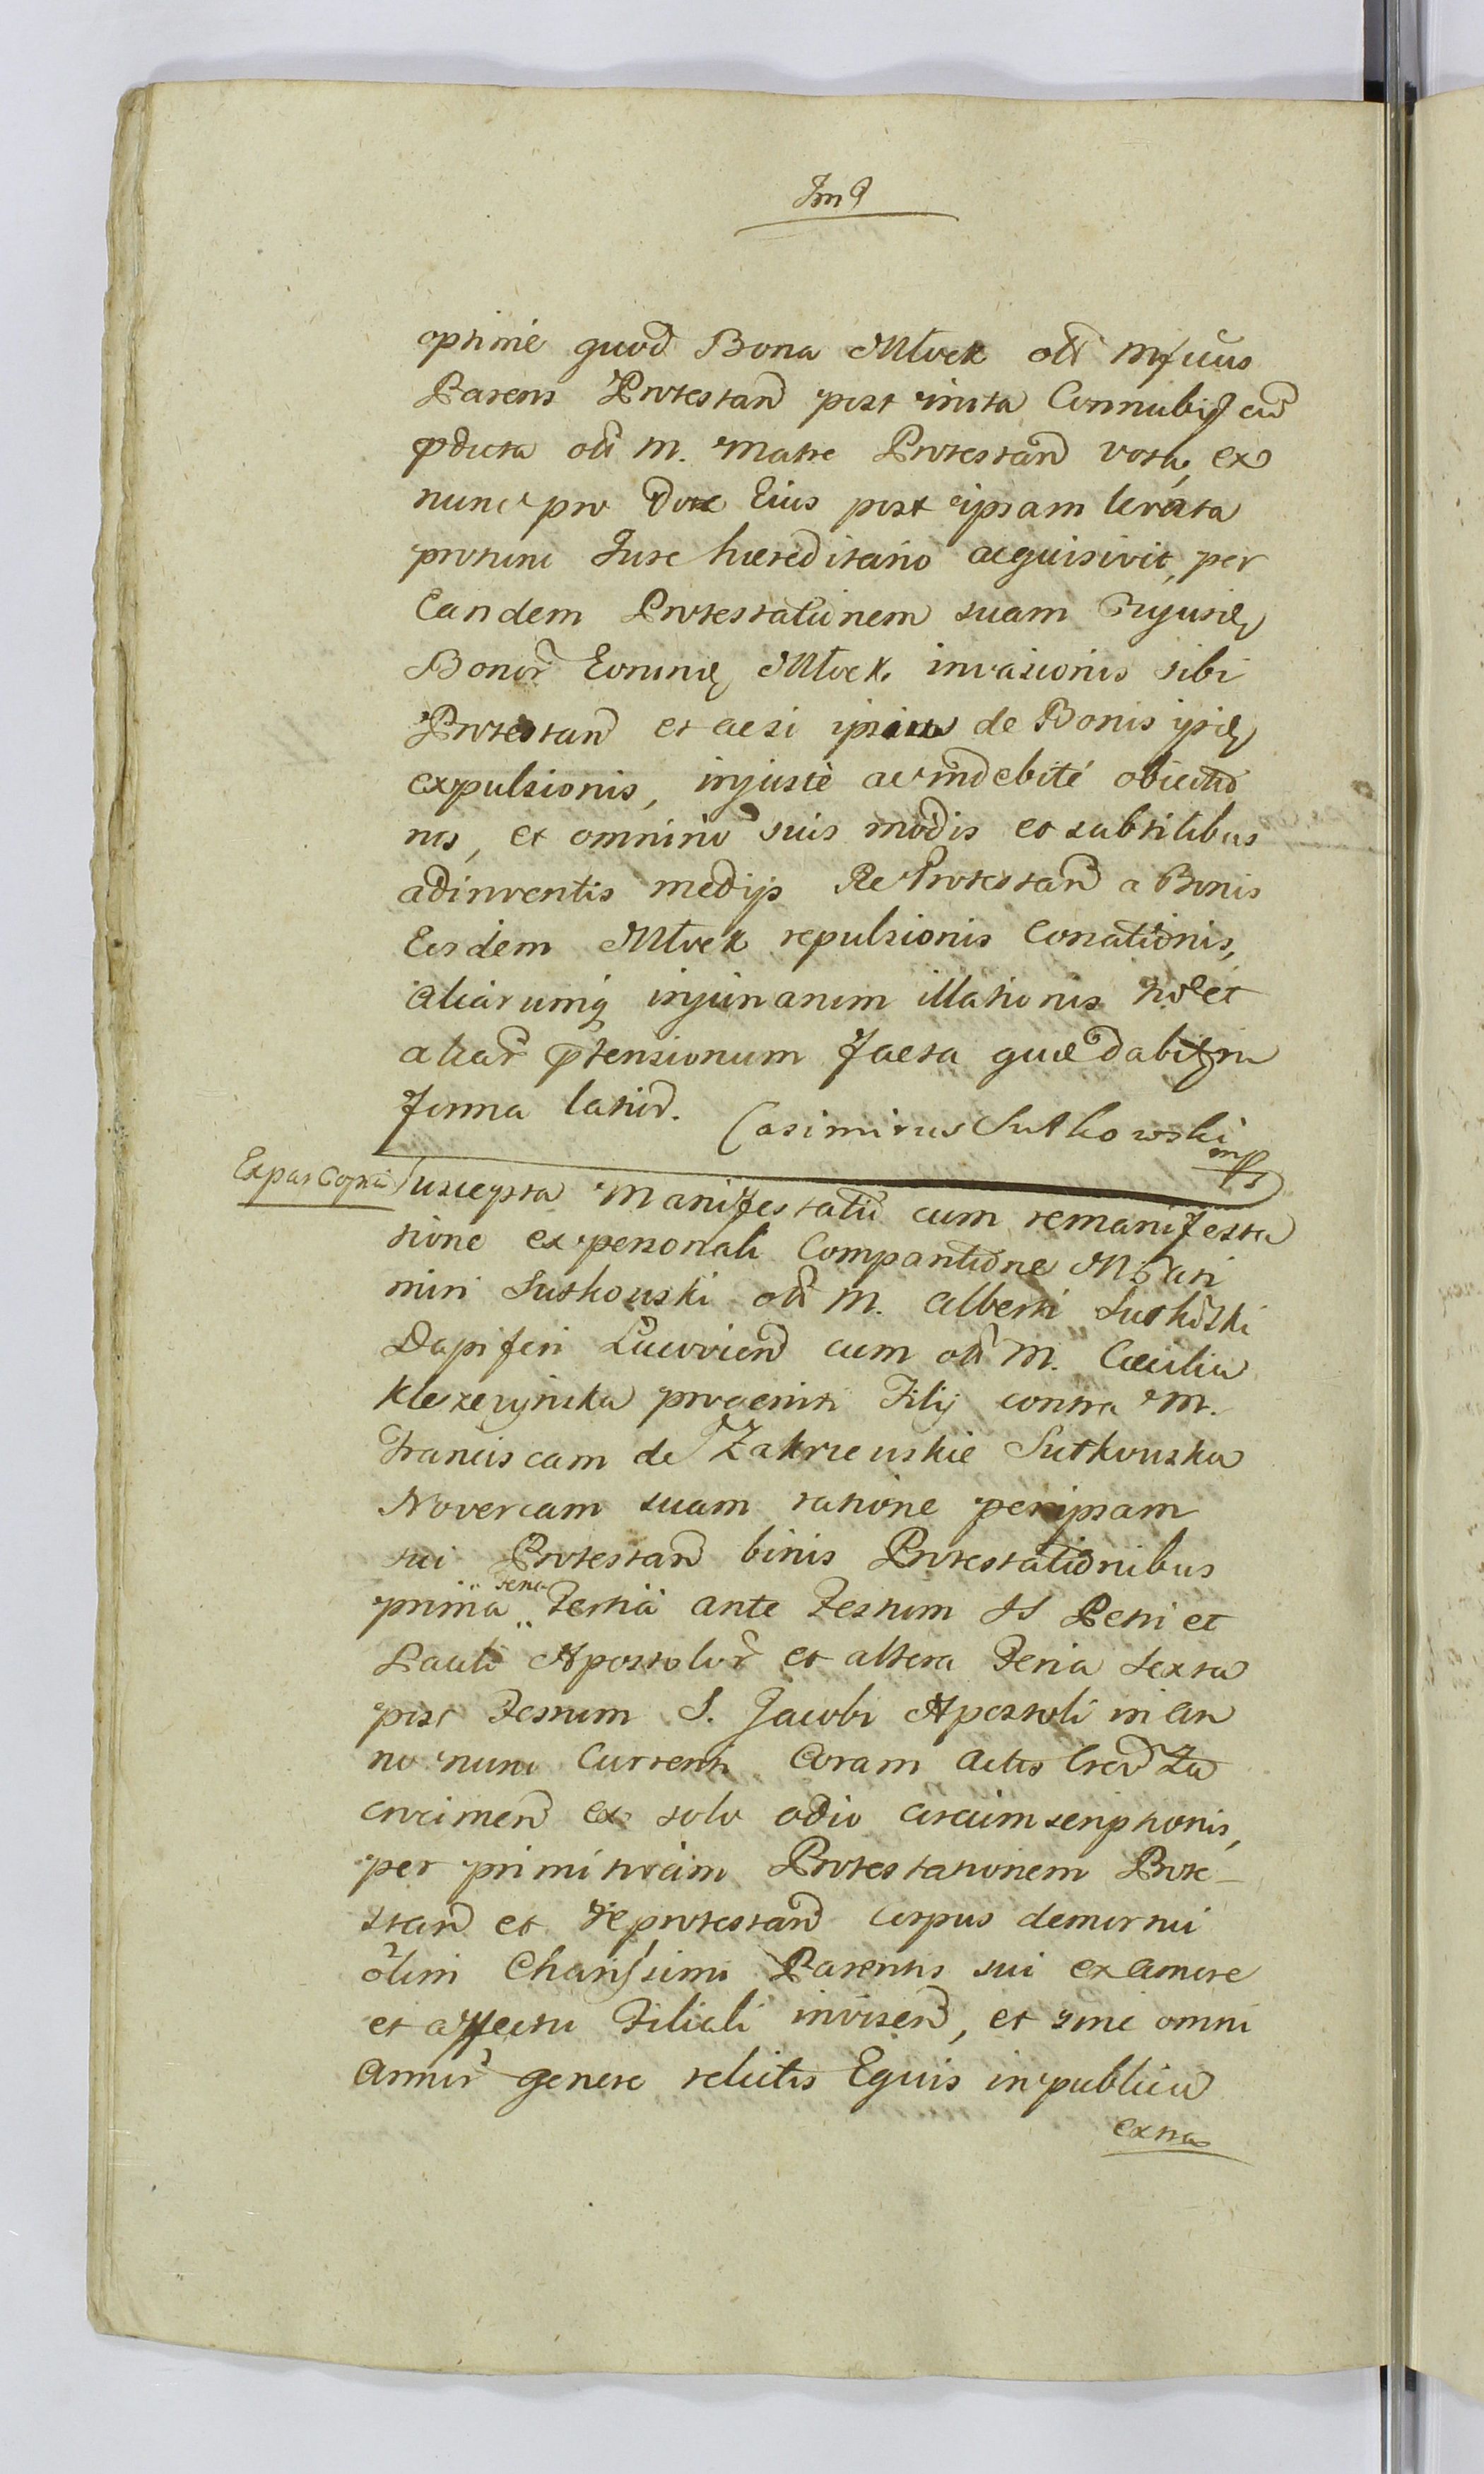 optimé quod Bona Młock oli M. suus
Parens Protestan post inita Connubij cu
pdicta oli M. Matre Protestan vota, ex
nunc pro Dote Eius post ipsam levata
protunc Jure hæreditario acquisivit, per
Eandem Protestationem suam
Bonor Młock invasionis sibi
Protestan et acsi ipsius de Bonis ipsis
expulsionis, injuste ac indebité obiectio
nis, et omnino suis modis et subtilibus
adinventis medijs Re Protestan a Bonis
Eisdem Młock repulsionis Conationis,
Aliarumq injuriarum illationis no et
aliar ptensionum facta quæ dabitur in
forma latior.
Casimirus Sutkowski mp
Ex par Copia
Suscepta Manifestatio cum remanifesta
tione ex personali Comparitione M Casi
miri Sutkowski oli M. Alberti Sutkowski
Dapiferi cum oli M. Cæcilia
Kleszczyńska progeniti Filij contra M.
Franciscam de Zakrzewskie Sutkowska
Novercam suam ratione per ipsam
sui Protestan binis Protestationibus
prima Feria Tertia ante Festum SS Petri et
Pauli Apostolor et altera Feria Sexta
post Festum S. Jacobi Apostoli in An
no nunc Currenti Coram Actis Za
crocimen ex solo odio circumscriptionis,
per primitivam Protestationem Prote-
stan et reprotestan corpus demortui
olim Charissimi Parentis sui ex amore
et affectu Filiali invisen, et sine omni
Armor genere relictis Equis in publica
extra